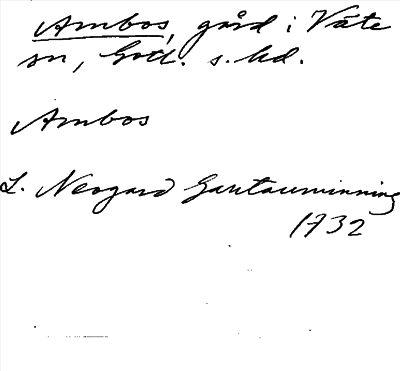 Ambos, gård i Väte
sn, Gotl. s. hd.
Ambos
L. Neogard Gautauminning
1732